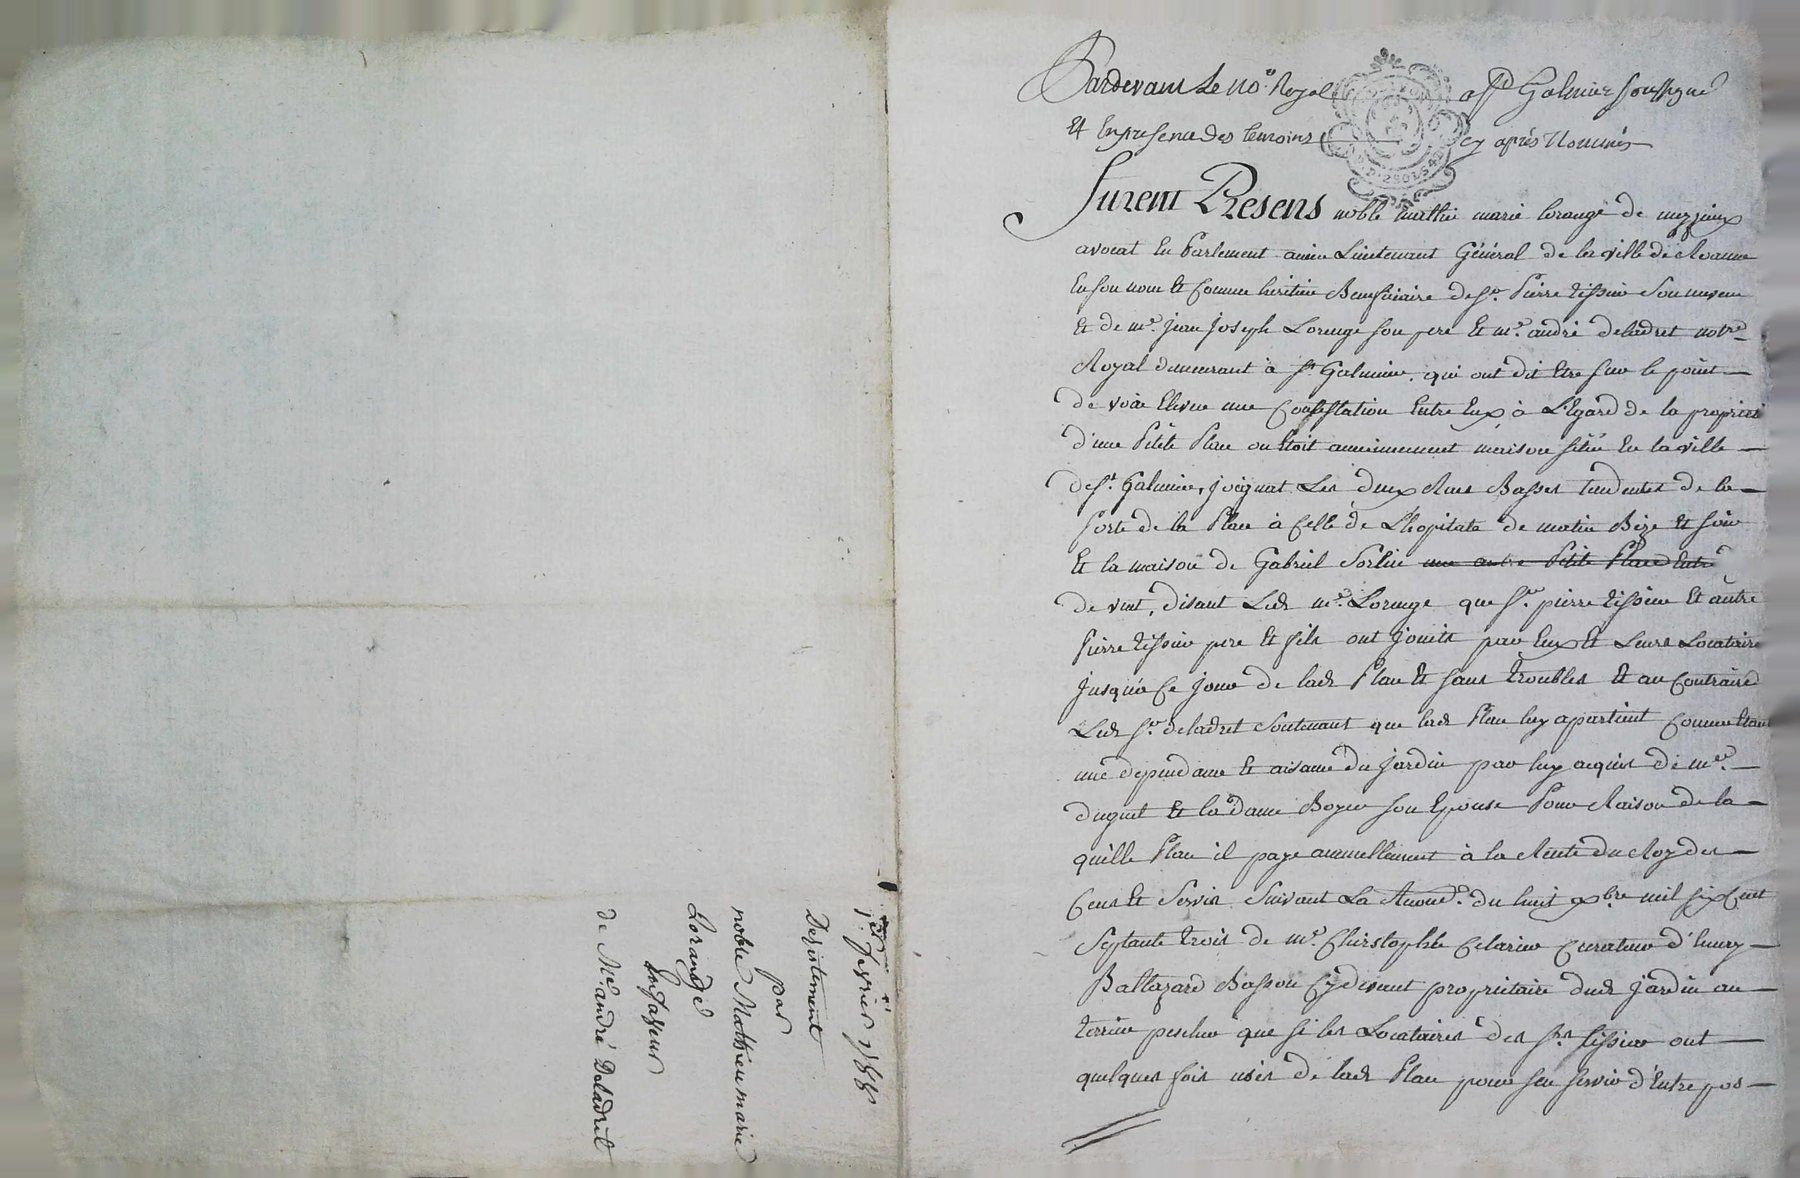 Pardevant Le no.e Royal a St Galmier soussigné
Et En presence des temoins cy après Nommés
Furent Presens noble matthieu marie lorange de
avocat En Parlement ancien Lieutenant Général de la ville de Roanne
En son nom Et Comme heritier Beneficiaire de Sr. Pierre tissier Son neveu
Et de me. jean joseph Lorange son pere Et me. andré deladret notre
Royal demeurant à St Galmier, qui ont dit Etre sur le point
de voir Elever une Contestation Entre Eux à L'Egard de la proprieté
d'une Petite Place ou Etoit anciennement maison sitüé En la ville
de St. Galmier, joignat Les deux Rues Basses tendentes de la
Porte de la Place à Celle de L'hopitale de matin Bize Et soir
Et la maison de Gabriel une autre Petite Place Entre
de vent, disant Ledt me. Lorange que Sr. pierre tissier Et autre
Pierre tissier pere Et fils ont jouit par Eux Et Leurs Locataire
jusqu'a Ce jour de ladt Place Et sans troubles Et au Contraire
Ledt Sr. deladret Soutenant que ladt Place luy apartient Comme Etant
une dependance Et aisance du jardin par luy acquis de me.
duguet Et la dame Boyer son Epouse Pour Raison de la
quelle Place il paye annuellement à la Rente du Roy des
Cens Et Servis Suivant La du huit xbre mil six Cent
Septante trois de me. Christophle Celarier Curateur d'
Baltazard Basson Cy devant proprietaire dudt jardin au
terrier que si les Locataires des Srs tissier ont
quelques fois usés de ladt Place pour sen servir d'Entrepos
1er fevrier 1788
Desistement
par
noble Mathieu marie
Lorange
En faveur
de Me. andré Deladret